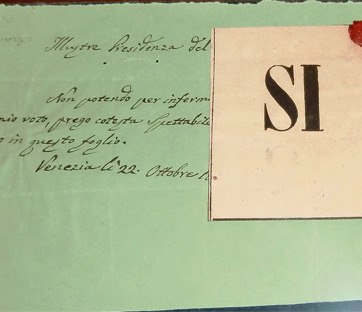 Illustre Presidenza del
Non potendo per inferm
mio voto, prego cotesta Spettabile
o in questo foglio.
Venezia li 22. Ottobre 1
SI